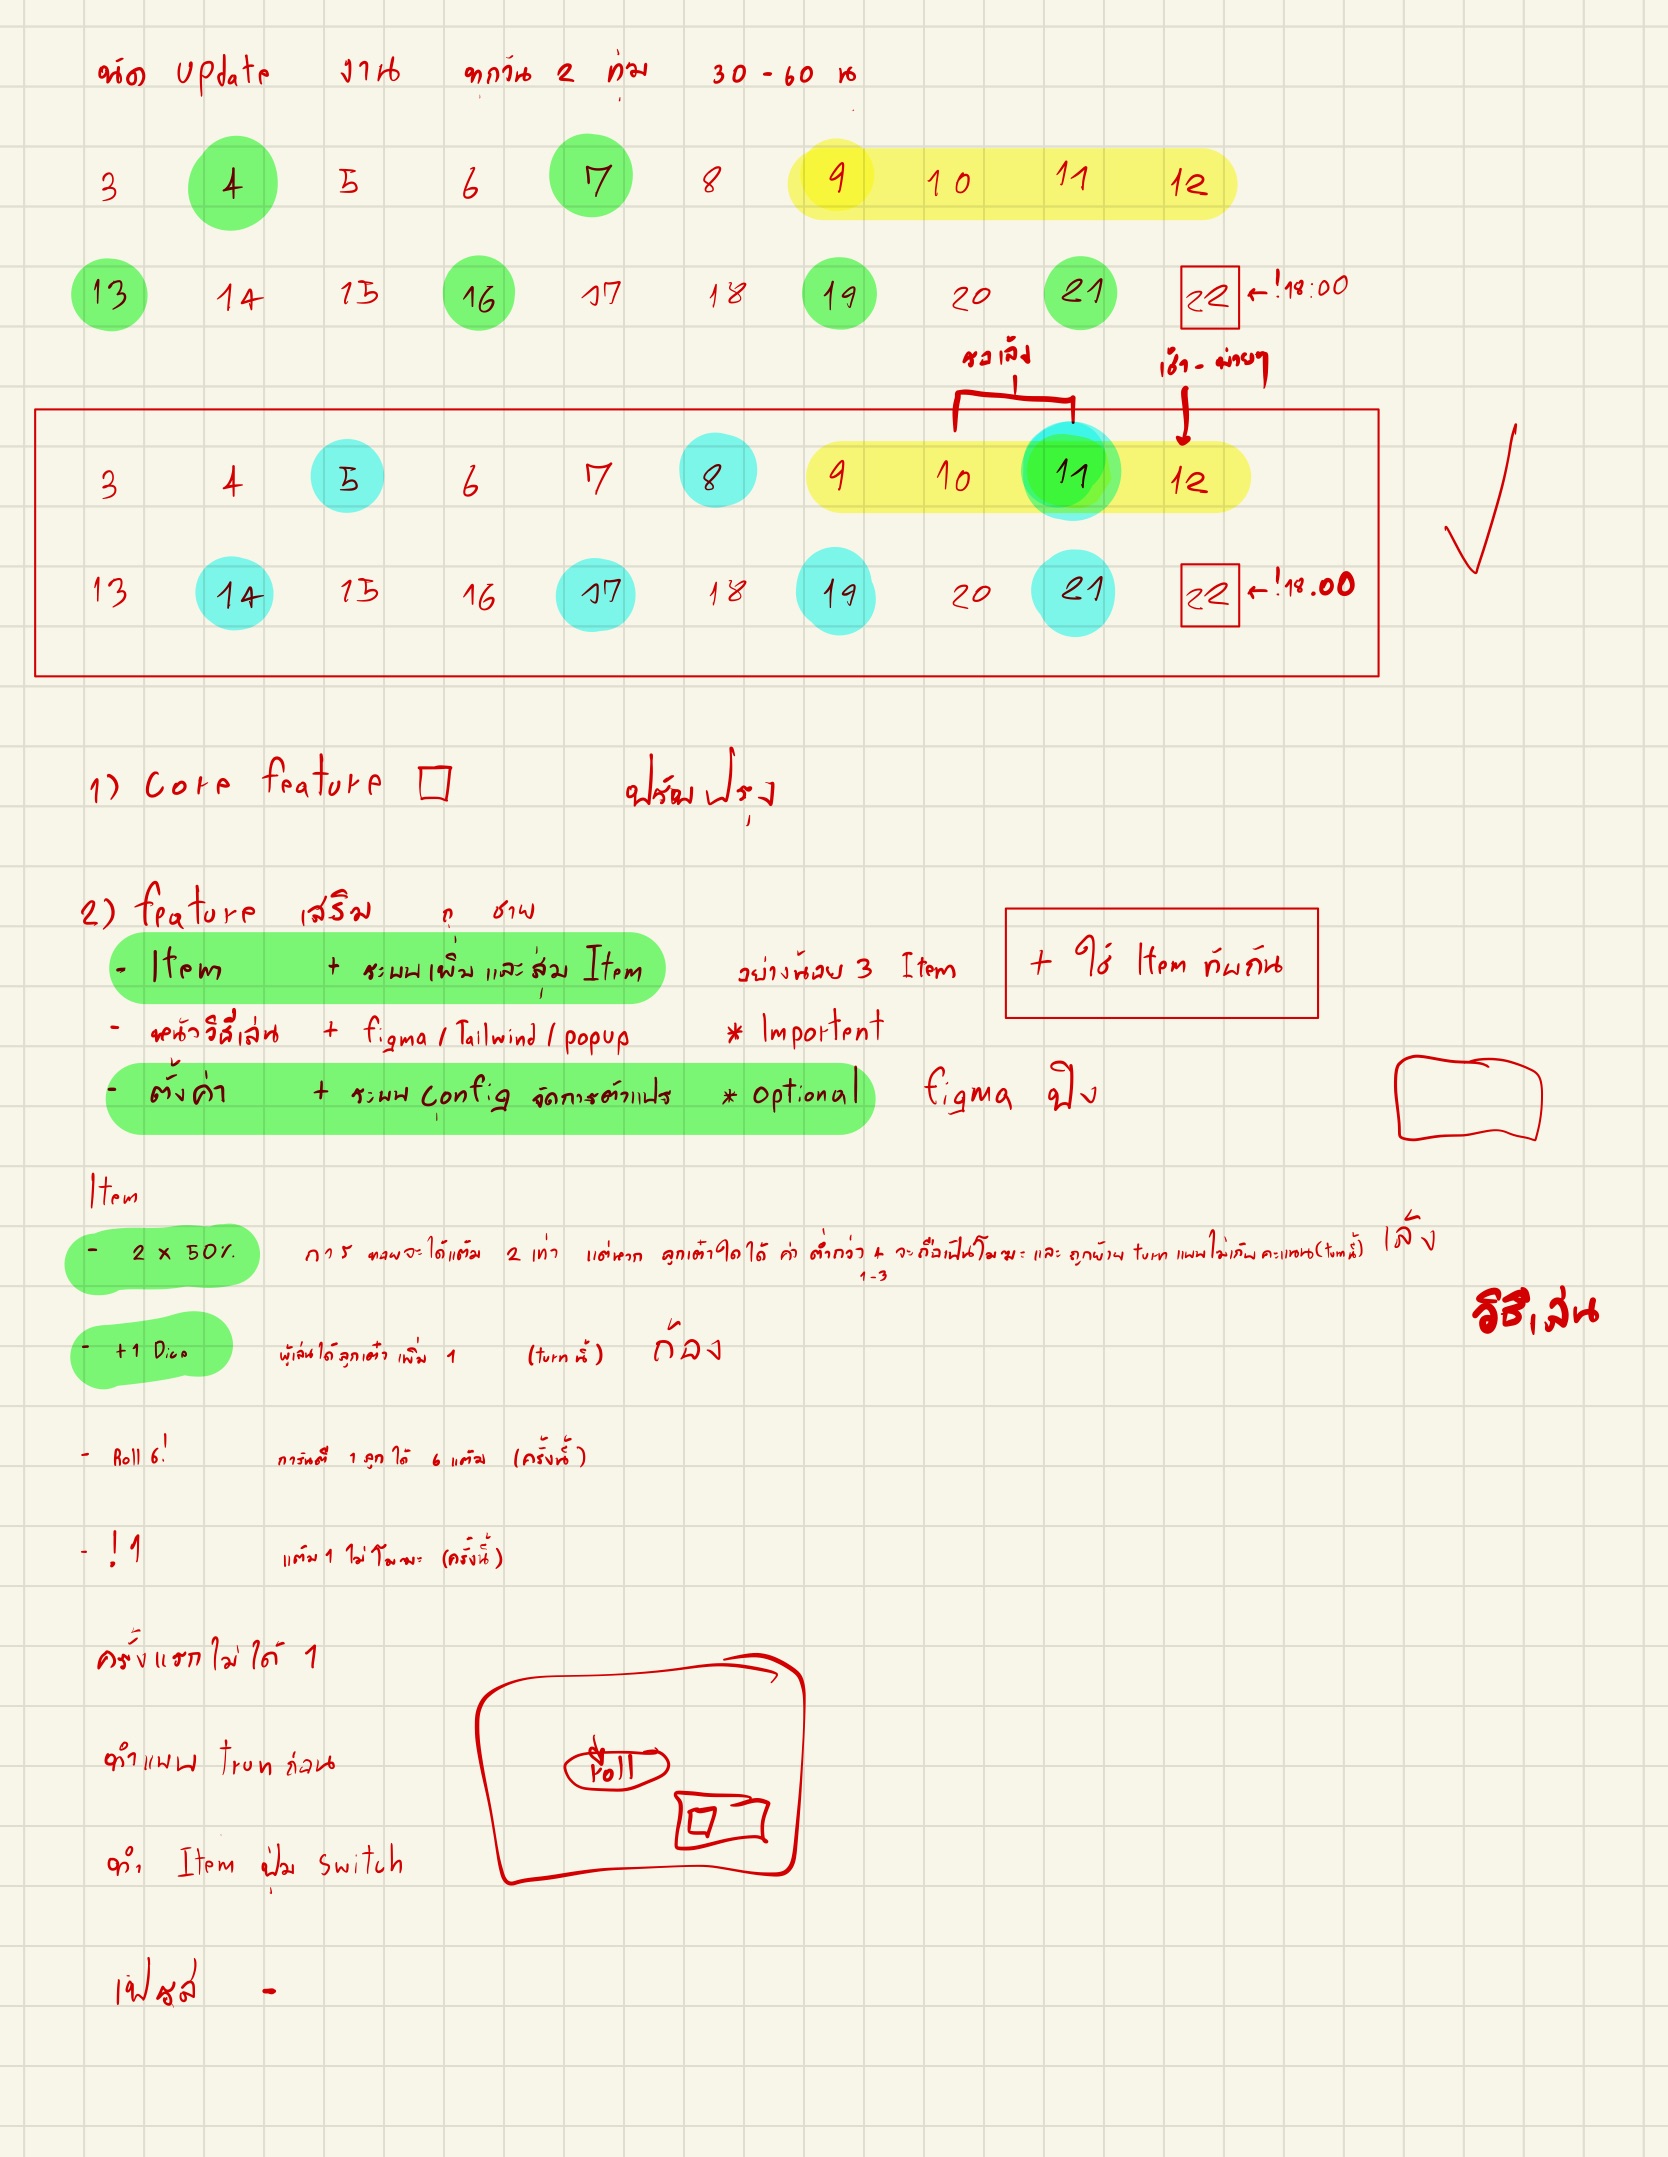 นัด Update งาน ทุกวัน 2 ทุ่ม 30-60 น
3 4 5 6 7 8 9 10 11 12
13 14 15 16 17 18 19 20 21 22 ←!18:00
รอเล้ง เช้า-บ่ายๆ
3 4 5 6 7 8 9 10 11 12
13 14 15 16 17 18 19 20 21 22 ←!18.00
1) Core feature ปรับปรุง
2) feature เสริม
- Item + ระบบเพิ่มและสุ่ม Item อย่างน้อย 3 Item + ใช้ Item ทับกัน
- หน้าวิธีเล่น + figma/Tailwind/popup * Importent
- ตั้งค่า + ระบบ Config จัดการตัวแปร * Optional figma ปิง
Item
- 2 x 50% การ ทอยจะได้แต้ม 2 เท่า แต่หาก ลูกเต๋าใดได้ ค่า ต่ำกว่า 4 จะถือเป็นโมฆะ และ ถูกย้าย turn แบบไม่เก็บคะแนน(turnนี้) เล้ง
1-3
วิธีเล่น
- +1 Dice ผู้เล่นได้ลูกเต๋า เพิ่ม 1 (turnนี้) ก้อง
- Roll 6! การันตี 1 ลูก ได้ 6 แต้ม (ครั้งนี้)
- !1 แต้ม 1 ไม่โมฆะ (ครั้งนี้)
ครั้งแรกไม่ได้ 1
ทำแบบ trun ก่อน
roll
ทำ Item ปุ่ม switch
เฟรส -